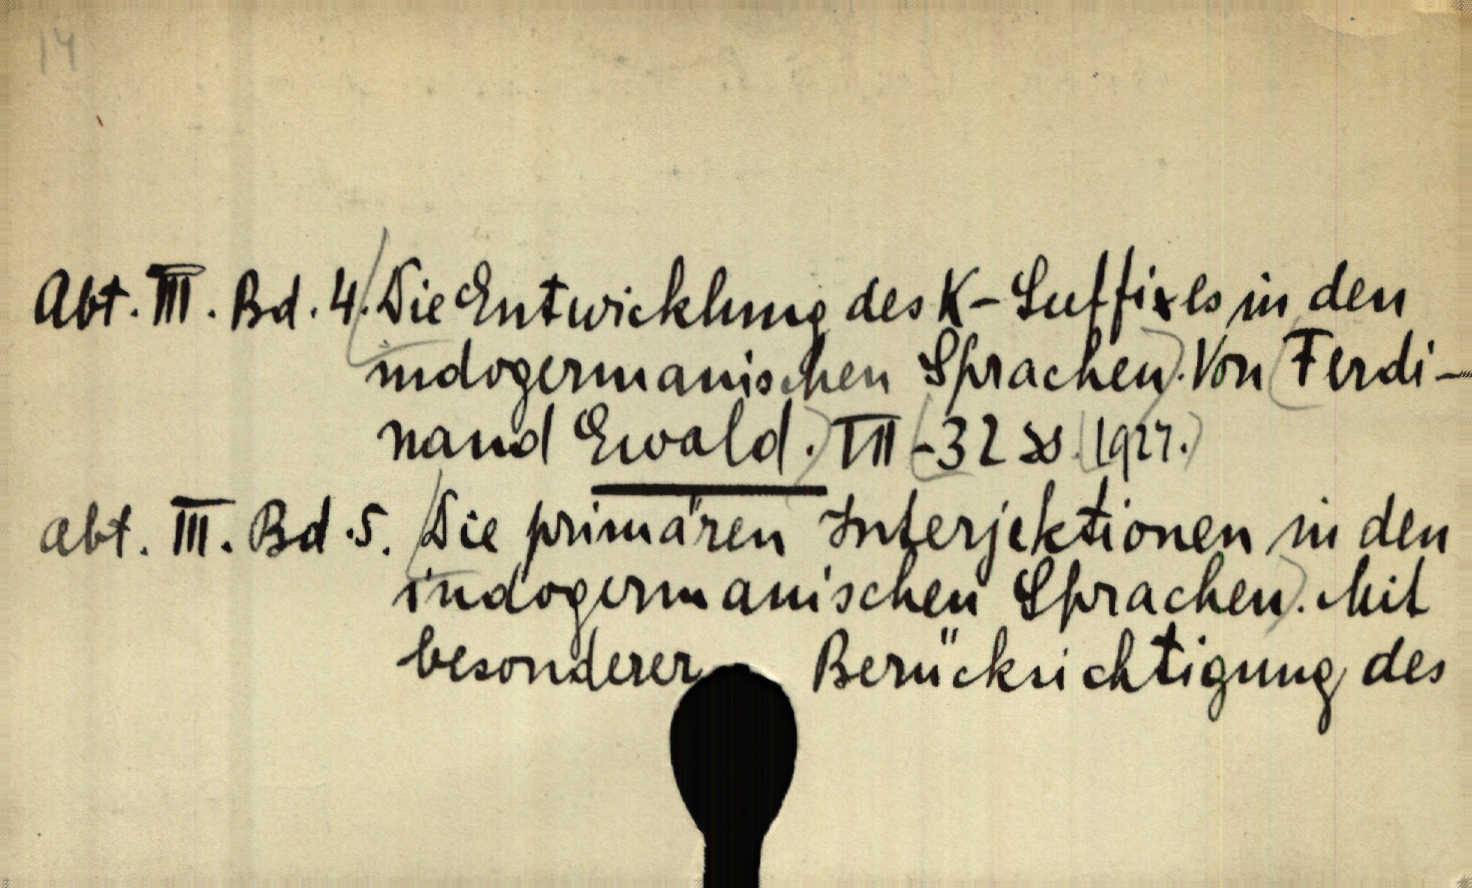 14
Abt. III. Bd. 4. Die Entwicklung des K-Suffixes in den
indogermanischen Sprachen. Von Ferdi-
nand Ewald. VII - 32 SS. 1927.
Abt. III. Bd. 5. Die primären Interjektionen in den
indogermanischen Sprachen. Mit
besonderer Berücksichtigung des